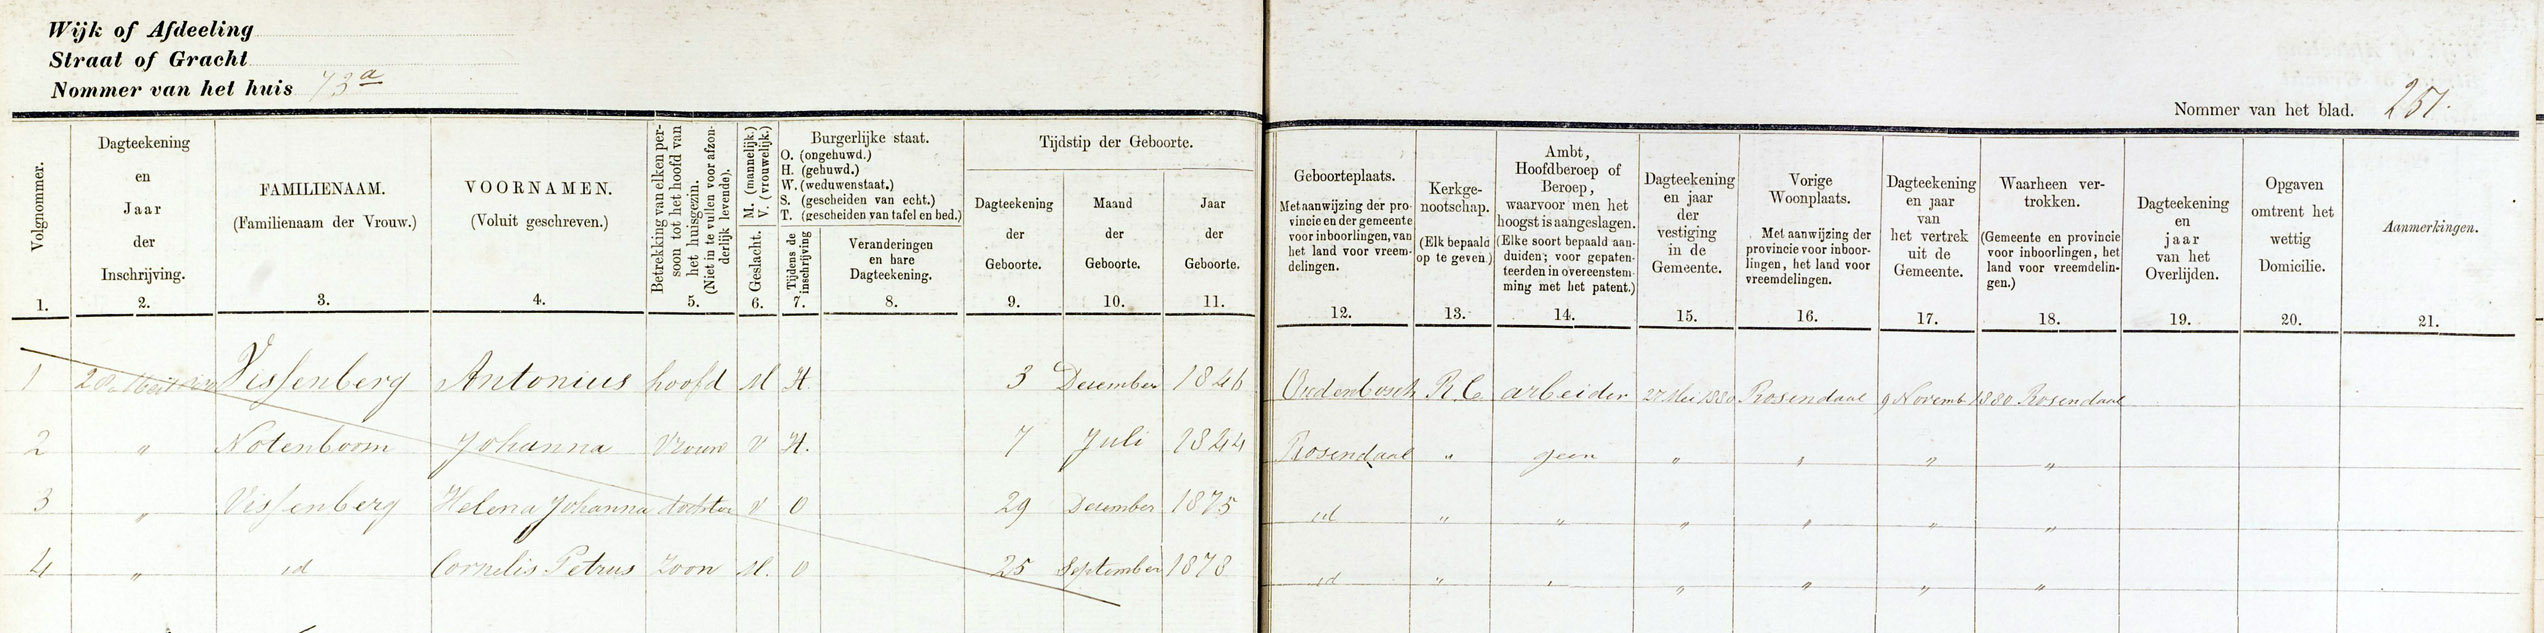 Wijk of Afdeeling
Straat of Gracht
Nommer van het huis 73a
Nommer van het blad. 251.
Volgnommer. 1.
Dagteekening en Jaar der Inschrijving. 2.
FAMILIENAAM. (Familienaam der Vrouw.) 3.
VOORNAMEN. (Voluit geschreven.) 4.
Betrekking van elken persoon tot het hoofd van het huisgezin. (Niet in te vullen voor afzonderlijk levende). 5.
Geslacht. M. (mannelijk.) V. (vrouwelijk.) 6.
Burgerlijke staat.
O. (ongehuwd.)
H. (gehuwd.)
W. (weduwenstaat.)
S. (gescheiden van echt.)
T. (gescheiden van tafel en bed.)
Tijdens de inschrijving 7.
Veranderingen en hare Dagteekening. 8.
Tijdstip der Geboorte.
Dagteekening der Geboorte. 9.
Maand der Geboorte. 10.
Jaar der Geboorte. 11.
Geboorteplaats. Met aanwijzing der provincie en der gemeente voor inboorlingen, van het land voor vreemdelingen. 12.
Kerkgenootschap. (Elk bepaald op te geven.) 13.
Ambt, Hoofdberoep of Beroep, waarvoor men het hoogst is aangeslagen. (Elke soort bepaald aanduiden; voor gepatenteerden in overeenstemming met het patent.) 14.
Dagteekening en jaar der vestiging in de Gemeente. 15.
Vorige Woonplaats. Met aanwijzing der provincie voor inboorlingen, het land voor vreemdelingen. 16.
Dagteekening en jaar van het vertrek uit de Gemeente. 17.
Waarheen vertrokken. (Gemeente en provincie voor inboorlingen, het land voor vreemdelingen.) 18.
Dagteekening en jaar van het Overlijden. 19.
Opgaven omtrent het wettig Domicilie. 20.
Aanmerkingen. 21.
1 Vissenberg Antonius hoofd M H. 3 December 1846 Oudenbosch R C arbeider 27 Mei 1880 Rosendaal 9 Novemb 1880 Rosendaal
2 " Notenboom Johanna Vrouw V H. 7 Juli 1844 Rosendaal " geen " " " "
3 " Vissenberg Helena Johanna dochter V O 29 December 1875 id " " " " " "
4 " id Cornelis Petrus Zoon M. O 25 September 1878 id " " " " " "